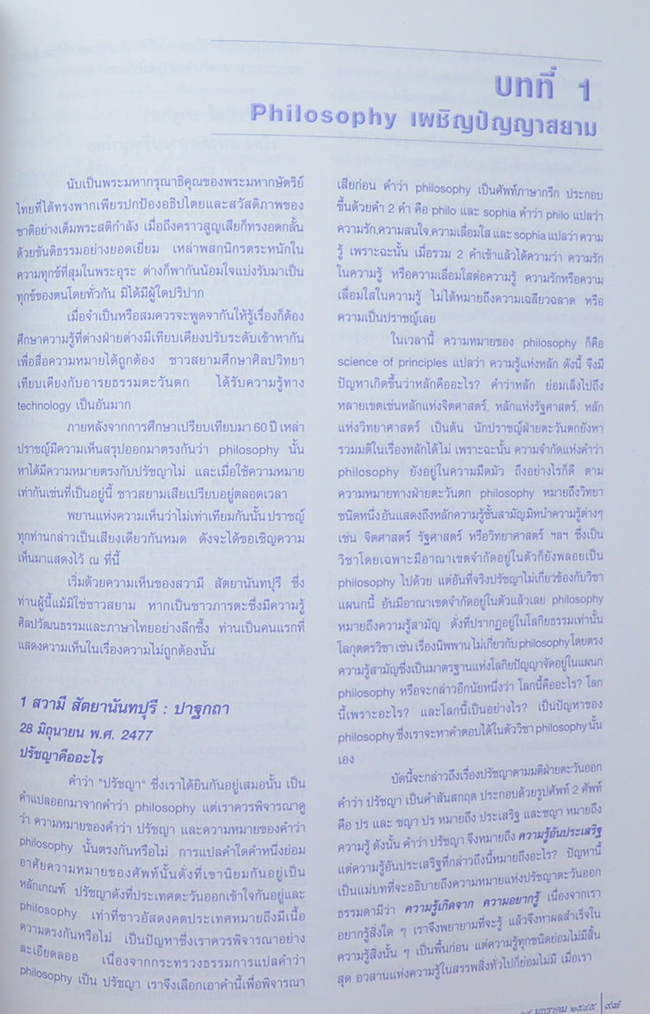 บทที่ 1
Philosophy เผชิญปัญญาสยาม
นับเป็นพระมหากรุณาธิคุณของพระมหากษัตริย์
ไทยที่ได้ทรงพากเพียรปกป้องอธิปไตยและสวัสดิภาพของ
ชาติอย่างเต็มพระสติกำลัง เมื่อถึงคราวสูญเสียก็ทรงอดกลั้น
ด้วยขันติธรรมอย่างยอดเยี่ยม เหล่าพสกนิกรตระหนักใน
ความทุกข์ที่สุมในพระอุระ ต่างก็พากันน้อมใจแบ่งรับมาเป็น
ทุกข์ของตนโดยทั่วกัน มิได้มีผู้ใดปริปาก
เมื่อจำเป็นหรือสมควรจะพูดจากันให้รู้เรื่องก็ต้อง
ศึกษาความรู้ที่ต่างฝ่ายต่างมีเทียบเคียงปรับระดับเข้าหากัน
เพื่อสื่อความหมายได้ถูกต้อง ชาวสยามศึกษาศิลปวิทยา
เทียบเคียงกับอารยธรรมตะวันตก ได้รับความรู้ทาง
technology เป็นอันมาก
ภายหลังจากการศึกษาเปรียบเทียบมา 60 ปี เหล่า
ปราชญ์มีความเห็นสรุปออกมาตรงกันว่า philosophy นั้น
หาได้มีความหมายตรงกับปรัชญาไม่ และเมื่อใช้ความหมาย
เท่ากันเช่นที่เป็นอยู่นี้ ชาวสยามเสียเปรียบอยู่ตลอดเวลา
พยานแห่งความเห็นว่าไม่เท่าเทียมกันนั้น ปราชญ์
ทุกท่านกล่าวเป็นเสียงเดียวกันหมด ดังจะได้ขอเชิญความ
เห็นมาแสดงไว้ ณ ที่นี้
เริ่มด้วยความเห็นของสวามี สัตยานันทปุรี ซึ่ง
ท่านผู้นี้แม้มิใช่ชาวสยาม หากเป็นชาวภารตะซึ่งมีความรู้
ศิลปวัฒนธรรมและภาษาไทยอย่างลึกซึ้ง ท่านเป็นคนแรกที่
แสดงความเห็นในเรื่องความไม่ถูกต้องนั้น
1 สวามี สัตยานันทปุรี : ปาฐกถา
28 มิถุนายน พ.ศ. 2477
ปรัชญาคืออะไร
คำว่า "ปรัชญา" ซึ่งเราได้ยินกันอยู่เสมอนั้น เป็น
คำแปลออกมาจากคำว่า philosophy แต่เราควรพิจารณาดู
ว่า ความหมายของคำว่า ปรัชญา และความหมายของคำว่า
philosophy นั้นตรงกันหรือไม่ การแปลคำใดคำหนึ่งย่อม
อาศัยความหมายของศัพท์นั้นดังที่เขานิยมกันอยู่เป็น
หลักเกณฑ์ ปรัชญาดังที่ประเทศตะวันออกเข้าใจกันอยู่และ
philosophy เท่าที่ชาวอัสดงคตประเทศหมายถึงมีเนื้อ
ความตรงกันหรือไม่ เป็นปัญหาซึ่งเราควรพิจารณาอย่าง
ละเอียดลออ เนื่องจากกระทรวงธรรมการแปลคำว่า
philosophy เป็น ปรัชญา เราจึงเลือกเอาคำนี้เพื่อพิจารณา
เสียก่อน คำว่า philosophy เป็นศัพท์ภาษากรีก ประกอบ
ขึ้นด้วยคำ 2 คำ คือ philo และ sophia คำว่า philo แปลว่า
ความรัก,ความสนใจ,ความเลื่อมใส และ sophia แปลว่า ความ
รู้ เพราะฉะนั้น เมื่อรวม 2 คำเข้าแล้วได้ความว่า ความรัก
ในความรู้ หรือความเลื่อมใสต่อความรู้ ความรักหรือความ
เลื่อมใสในความรู้ ไม่ได้หมายถึงความเฉลียวฉลาด หรือ
ความเป็นปราชญ์เลย
ในเวลานี้ ความหมายของ philosophy ก็คือ
science of principles แปลว่า ความรู้แห่งหลัก ดังนี้ จึงมี
ปัญหาเกิดขึ้นว่าหลักคืออะไร? คำว่าหลัก ย่อมเล็งไปถึง
หลายเขตเช่นหลักแห่งจิตศาสตร์, หลักแห่งรัฐศาสตร์, หลัก
แห่งวิทยาศาสตร์ เป็นต้น นักปราชญ์ฝ่ายตะวันตกยังหา
รวมมติในเรื่องหลักได้ไม่ เพราะฉะนั้น ความจำกัดแห่งคำว่า
philosophy ยังอยู่ในความมืดมัว ถึงอย่างไรก็ดี ตาม
ความหมายทางฝ่ายตะวันตก philosophy หมายถึงวิทยา
ชนิดหนึ่ง อันแสดงถึงหลักความรู้ชั้นสามัญ มิหนำความรู้ต่างๆ
เช่น จิตศาสตร์ รัฐศาสตร์ หรือวิทยาศาสตร์ ฯลฯ ซึ่งเป็น
วิชาโดยเฉพาะมีอาณาเขตจำกัดอยู่ในตัวก็ยังพลอยเป็น
philosophy ไปด้วย แต่อันที่จริงปรัชญาไม่เกี่ยวข้องกับวิชา
แผนกนี้ อันมีอาณาเขตจำกัดอยู่ในตัวแล้วเลย philosophy
หมายถึงความรู้สามัญ ดั่งที่ปรากฏอยู่ในโลกิยธรรมเท่านั้น
โลกุตตรวิชา เช่น เรื่องนิพพาน ไม่เกี่ยวกับ philosophy โดยตรง
ความรู้สามัญซึ่งเป็นมาตรฐานแห่งโลกิยปัญญาจัดอยู่ในแผนก
philosophy หรือจะกล่าวอีกนัยหนึ่งว่า โลกนี้คืออะไร? โลก
นี้เพราะอะไร? และโลกนี้เป็นอย่างไร? เป็นปัญหาของ
philosophy ซึ่งเราจะหาคำตอบได้ในตัววิชา philosophy นั้น
เอง
บัดนี้จะกล่าวถึงเรื่องปรัชญาตามมติฝ่ายตะวันออก
คำว่า ปรัชญา เป็นคำสันสกฤต ประกอบด้วยรูปศัพท์ 2 ศัพท์
คือ ปร และ ชญา ปร หมายถึง ประเสริฐ และชญา หมายถึง
ความรู้ ดังนั้น คำว่า ปรัชญา จึงหมายถึง ความรู้อันประเสริฐ
แต่ความรู้อันประเสริฐที่กล่าวถึงนี้หมายถึงอะไร? ปัญหานี้
เป็นแม่บทที่จะอธิบายถึงความหมายแห่งปรัชญาตะวันออก
ธรรมดามีว่า ความรู้เกิดจาก ความอยากรู้ เนื่องจากเรา
อยากรู้สิ่งใด ๆ เราจึงพยายามที่จะรู้ แล้วจึงหาผลสำเร็จใน
ความรู้สิ่งนั้น ๆ เป็นพื้นก่อน แต่ความรู้ทุกชนิดย่อมไม่มีสิ้น
สุด อวสานแห่งความรู้ในสรรพสิ่งทั่วไปก็ย่อมไม่มี เมื่อเรา
มกราคม ๒๕๔๕ ๙๗